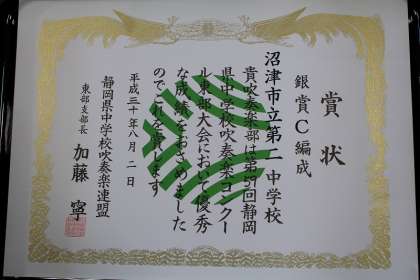 賞状
銀賞C編成
沼津市立第二中学校
貴吹奏楽部は第59回静岡
県中学校吹奏楽コンクー
ル東部大会において優秀
な成績をおさめました
のでこれを賞します
平成三十年八月二日
静岡県中学校吹奏楽連盟
東部支部長 加藤寧